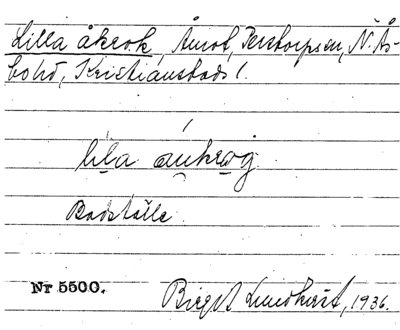 Lilla åkrok, Åmot, Perstorps sn, N. Ås-
bohd, Kristianstads l.
lila áukrog
Badställe
Nr 5500.
Birgit Lundkvist, 1936.